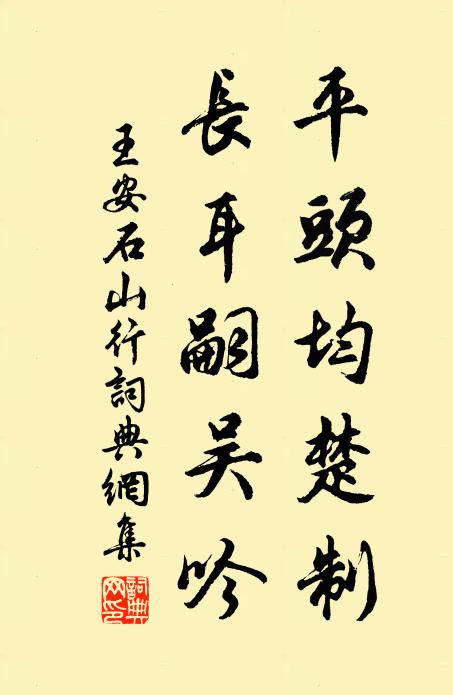 平頭均楚制
長耳嗣吴吟
王安石山行詞典網集
詞典网印